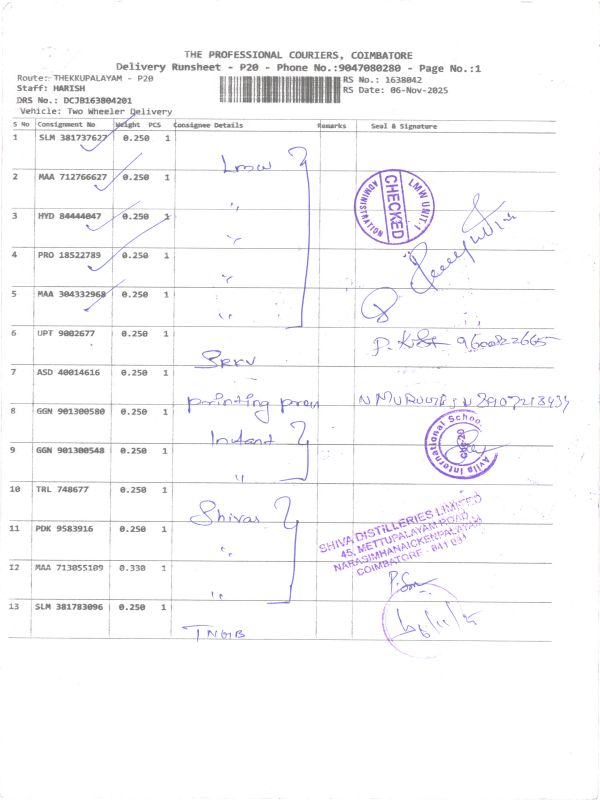 THE PROFESSIONAL COURIERS, COIMBATORE
Delivery Runsheet - P20 - Phone No.:9047080280 - Page No.:1
Route: THEKKUPALAYAM - P20
RS No.: 1638042
Staff: HARISH
RS Date: 06-Nov-2025
DRS No.: DCJB163804201
Vehicle: Two Wheeler Delivery
S No Consignment No Weight PCS Consignee Details Remarks Seal & Signature
1 SLM 381737627 0.250 1 LMW
2 MAA 712766627 0.250 1 〃
LMW UNIT-1
CHECKED
ADMINISTRATION
3 HYD 84444047 0.250 1 〃
4 PRO 18522789 0.250 1 〃
5 MAA 304332968 0.250 1 〃
6 UPT 9002677 0.250 1 SRRV
7 ASD 40014616 0.250 1 printing press
8 GGN 901300580 0.250 1
Avila International School
9 GGN 901300548 0.250 1 〃
10 TRL 748677 0.250 1 Shivas
SHIVA DISTILLERIES LIMITED
45, METTUPALAYAM ROAD,
NARASIMHANAICKENPALAYAM
COIMBATORE - 641 031
11 PDK 9583916 0.250 1 〃
12 MAA 713055109 0.330 1 〃
13 SLM 381783096 0.250 1 TNGB